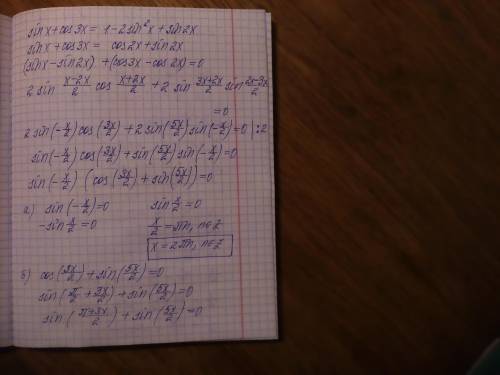 sin x + cos 3x = 1 - 2 sin² x + sin 2x
sin x + cos 3x = cos 2x + sin 2x
(sin x - sin 2x) + (cos 3x - cos 2x) = 0
2 sin (x-2x)/2 cos (x+2x)/2 + 2 sin (3x+2x)/2 sin (2x-3x)/2
= 0
2 sin(-x/2) cos(3x/2) + 2 sin(5x/2) sin(-x/2) = 0 |:2
sin(-x/2) cos(3x/2) + sin(5x/2) sin(-x/2) = 0
sin(-x/2) (cos(3x/2) + sin(5x/2)) = 0
а) sin(-x/2) = 0 sin x/2 = 0
-sin x/2 = 0 x/2 = πn, n∈Z
x = 2πn, n∈Z
б) cos(3x/2) + sin(5x/2) = 0
sin(π/2 + 3x/2) + sin(5x/2) = 0
sin((π+3x)/2) + sin(5x/2) = 0